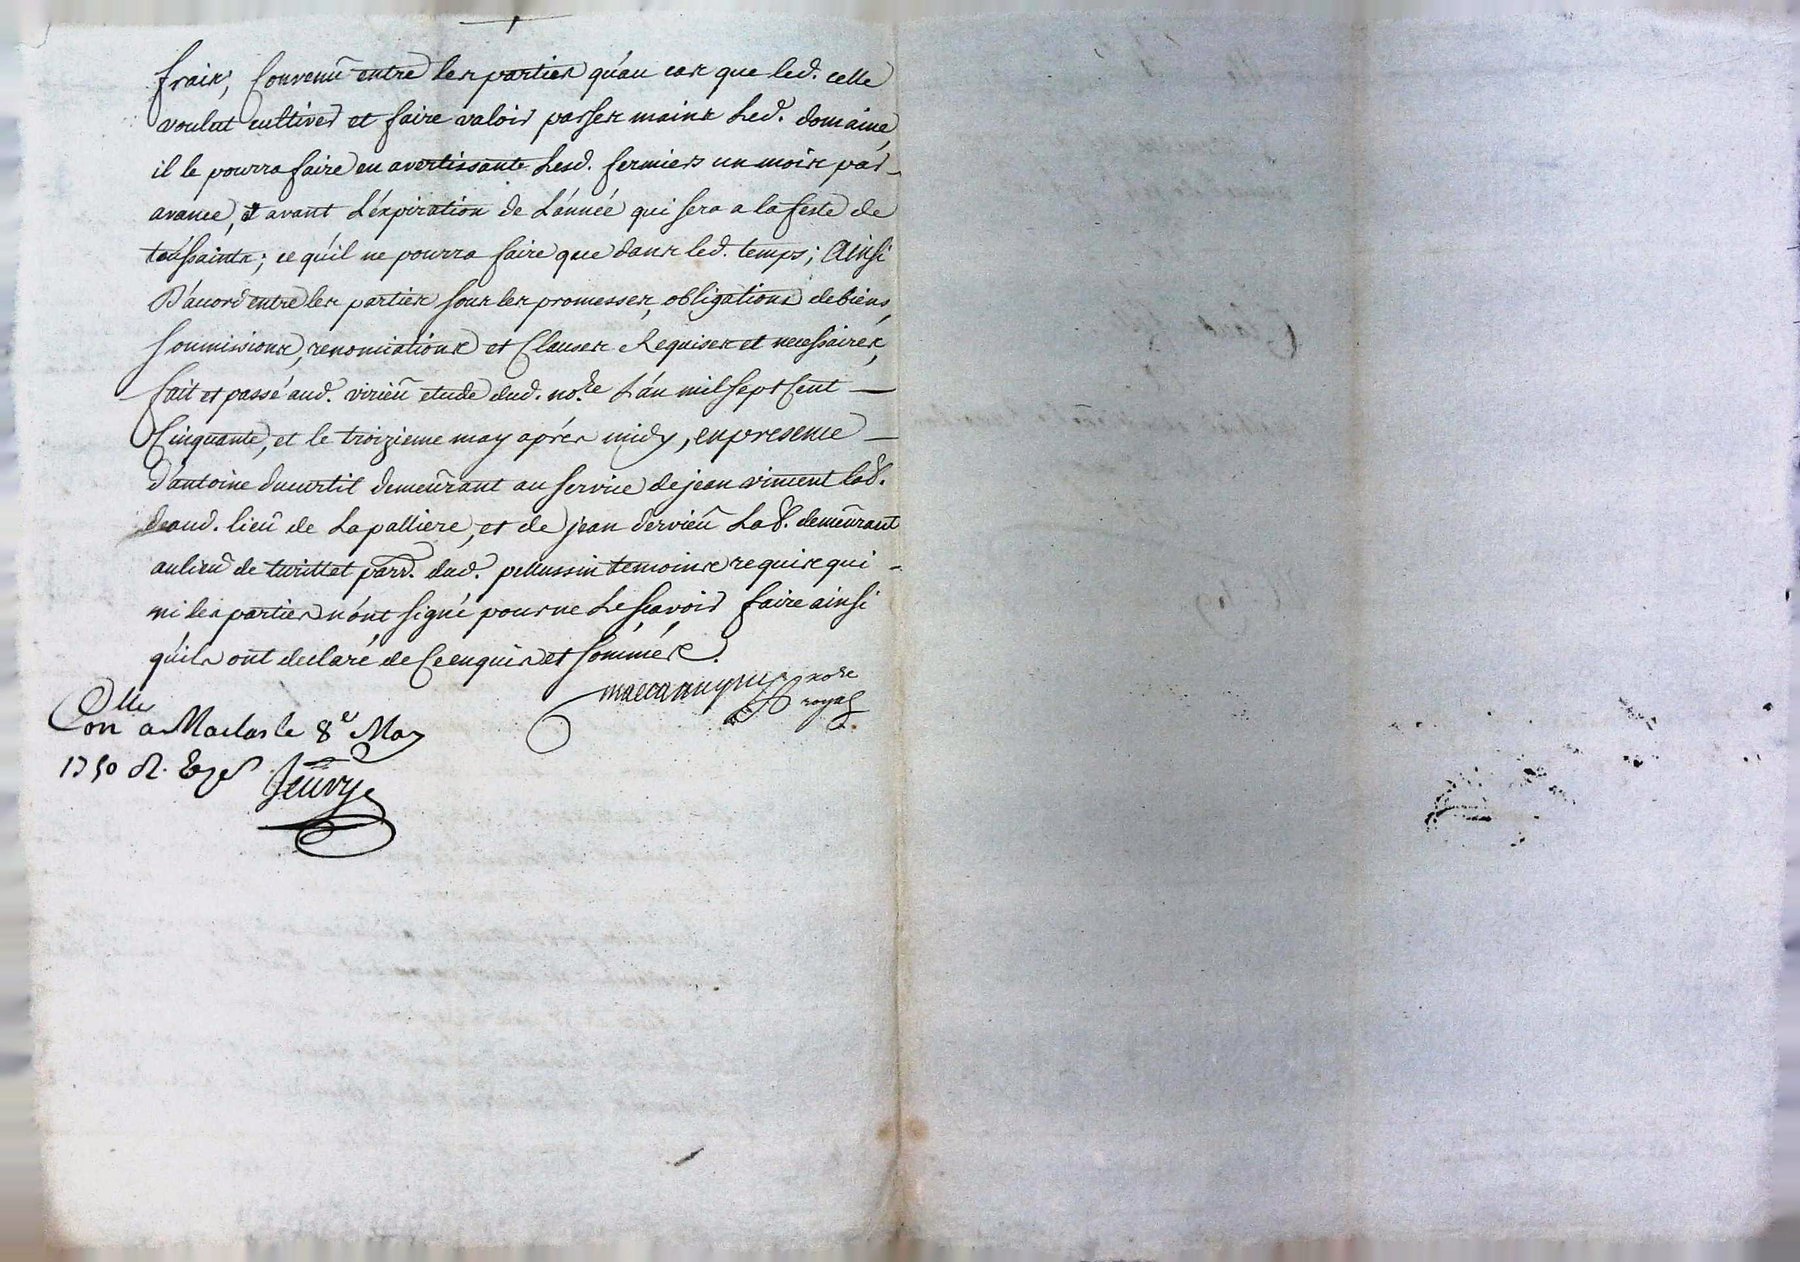 frais, Convenu entre les parties qu'au cas que led. celle
voulut cultiver et faire valoir par ses mains Led. domaine,
il le pourra faire en avertissante Lesd. fermiers un mois par
avance, et avant L'éxpiration de L'année qui sera a la feste de
toussaints; ce qu'il ne pourra faire que dans led. temps; Ainsi
D'accord entre les parties sous les promesses, obligations de biens,
soumissions, renonciations et Clauses Requises et necessaires,
fait et passé aud. virieu etude dud. no.re L'an mil sept Cent
Cinquante, et le troizieme may aprés midy, en presence
d'antoine ducurtil demeurant au service de jean vincent lab.
deaud. lieu de La palliere, et de jean dervieu Lab. demeurant
au lieu de turittet parr. dud. pellussin temoins requis qui
ni les parties n'ont signé pour ne Le sçavoir faire ainsi
qu'ils ont declaré de Ce enquis et sommés.
no.re
royal
Con.lle a Maclas le 8e May
1750 R.